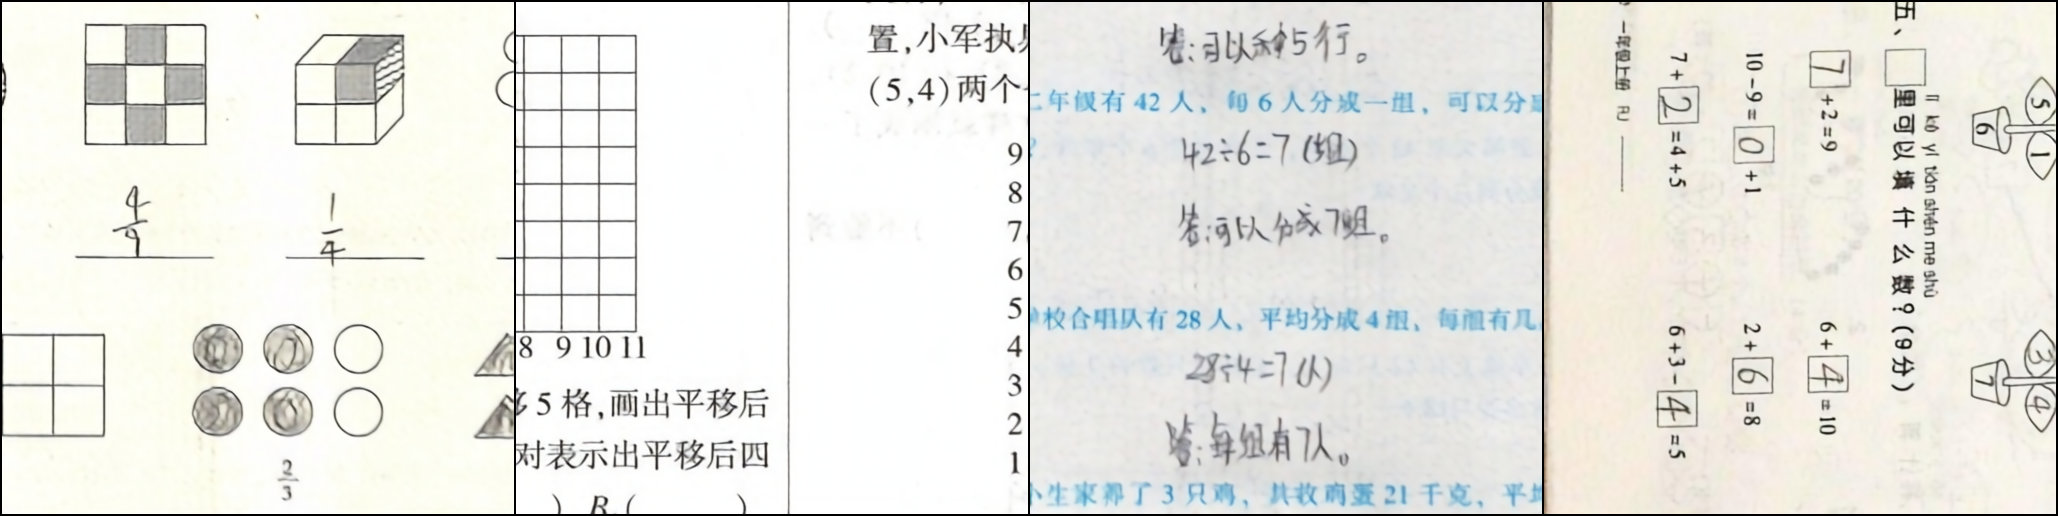 4/9
1/4
2/3
8 9 10 11
移5格,画出平移后
对表示出平移后四
) B.( )
置,小军执
(5,4)两个
9
8
7
6
5
4
3
2
1
答:可以种5行。
二年级有 42 人，每 6 人分成一组，可以分成
42÷6=7(组)
答:可以分成7组。
学校合唱队有 28 人，平均分成 4 组，每组有几
28÷4=7(人)
答:每组有7人。
小生家养了 3 只鸡，共收鸡蛋 21 千克，平均
5 1
6
3 4
7
lǐ kě yǐ tián shén me shù
五、□里可以填什么数?(9分)
7+2=9
6+4=10
10-9=0+1
2+6=8
7+2=4+5
6+3-4=5
一年级上册 RJ